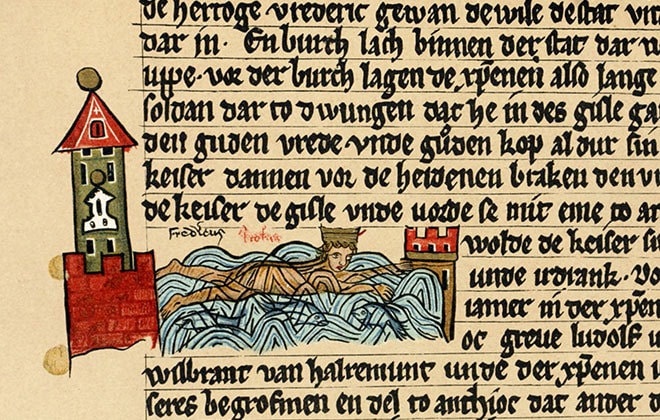 de hertoge vrederic gewan de wile de stat
dar in · En burch lach binnen der stat dar
uppe · vor der burch lagen de xp̄enen also lange
soldan dar to dwungen dat he in des gisle
den guden vrede · vnde guden kop al dur
keiser dannen vor de heidenen braken den
de keiser de gisle vnde uorde se mit eme to
fredicus
wolde de keiser
unde irdrank ·
iamer in der
oc greue ludolf
wilbrant van halremunt unde der xp̄enen
seres begrofmen en del to anthioc dat ander